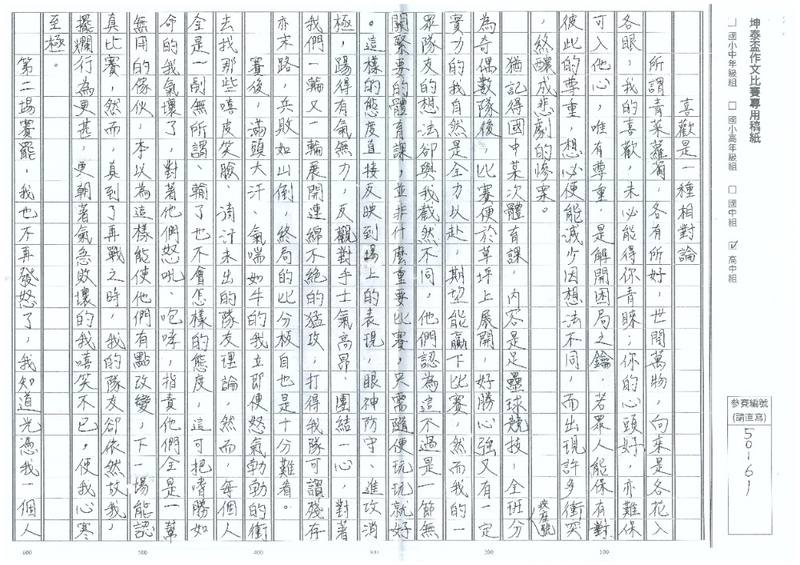 坤泰盃作文比賽專用稿紙
□ 國小中年級組 □ 國小高年級組 □ 國中組 ☑ 高中組
參賽編號
(請直寫)
50161
喜歡是一種相對論
所謂青菜蘿蔔，各有所好，世間萬物，向來是各花入
各眼，我的喜歡，未必能得你青睞；你的心頭好，亦難保
可入他心，唯有尊重，是解開困局之鑰，若眾人能保有對
彼此的尊重，想必便能減少因想法不同，而出現許多衝突
，終釀成悲劇的慘案。
猶記得國中某次體育課，內容是足壘球競技，全班分
為奇偶數隊後，比賽便於草坪上展開，好勝心強又有一定
實力的我自然是全力以赴，期望能贏下比賽，然而我的一
眾隊友的想法卻與我截然不同，他們認為這不過是一節無
關緊要的體育課，並非什麼重要比賽，只需隨便玩玩就好
。這樣的態度直接反映到場上的表現，眼神防守、進攻消
極，踢得有氣無力，反觀對手士氣高昂、團結一心，對著
我們一輪又一輪展開連綿不絕的猛攻，打得我隊可謂殘存
亦末路，兵敗如山倒，終局的比分板自也是十分難看。
賽後，滿頭大汗、氣喘如牛的我立即便怒氣勃勃的衝
去找那些嘻皮笑臉、滴汗未出的隊友理論，然而，每個人
全是一副無所謂、輸了也不會怎樣的態度，這可把嗜勝如
命的我氣壞了，對著他們怒吼、咆哮，指責他們全是一幫
無用的傢伙，本以為這樣能使他們有點改變，下一場能認
真比賽，然而，真到了再戰之時，我的隊友卻依然故我，
擺爛行為更甚，更朝著氣急敗壞的我嘻笑不已，使我心寒
至極。
第二場賽罷，我也不再發怒了，我知道光憑我一個人
600
500
400
300
200
100